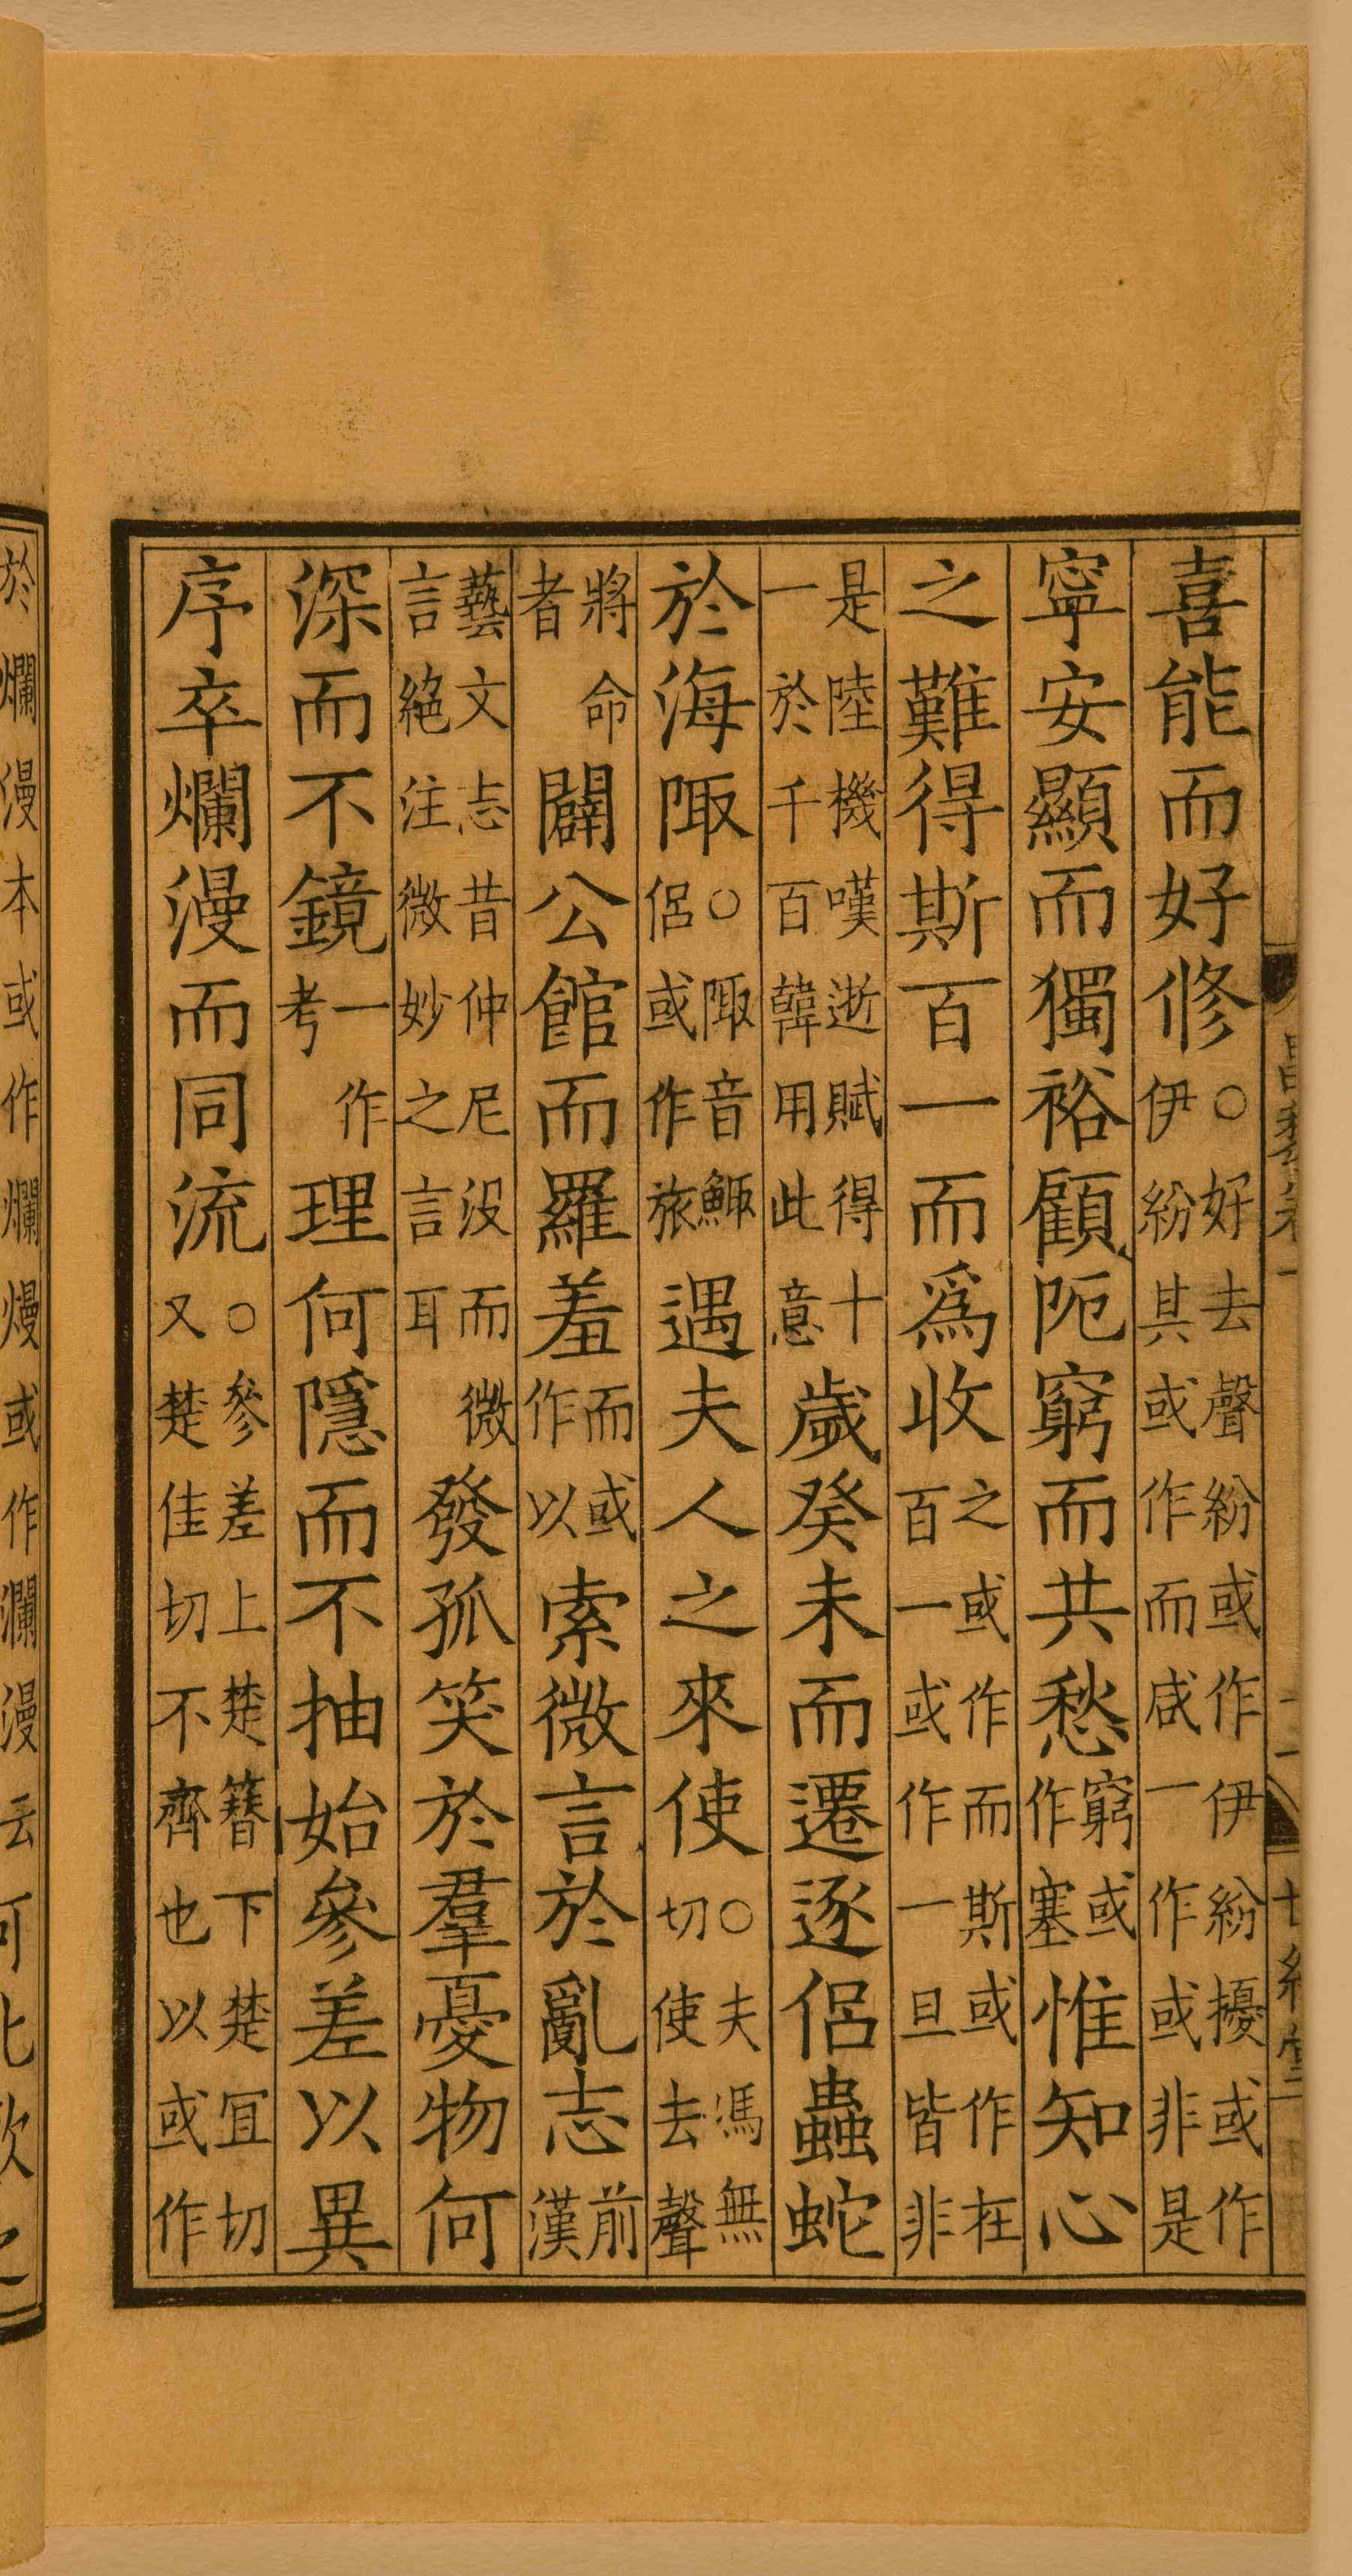 喜能而好修○好去聲紛或作伊紛擾或作伊紛其或作而咸一作或非是
寧安顯而獨裕顧阨窮而共愁窮或作塞惟知心
之難得斯百一而爲收之或作而斯或作在百一或作一旦皆非
是陸機嘆逝賦得十一於千百韓用此意歲癸未而遷逐侶蟲蛇
於海陬○陬音鯫侶或作旅遇夫人之來使○夫馮無切使去聲
將命者闢公館而羅羞而或作以索微言於亂志前漢
藝文志昔仲尼没而微言絕注微妙之言耳發孤笑於羣憂物何
深而不鏡一作考理何隱而不抽始參差以異
序卒爛漫而同流○參差上楚簪下楚冝切又楚佳切不齊也以或作
於爛漫本或作爛熳或作瀾漫云